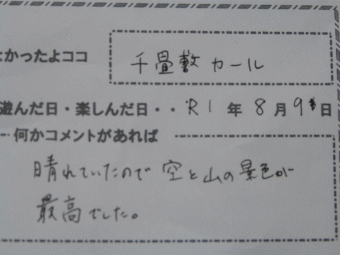 よかったよココ
千畳敷カール
遊んだ日・楽しんだ日・・R1年8月9日
何かコメントがあれば
晴れていたので空と山の景色が
最高でした。